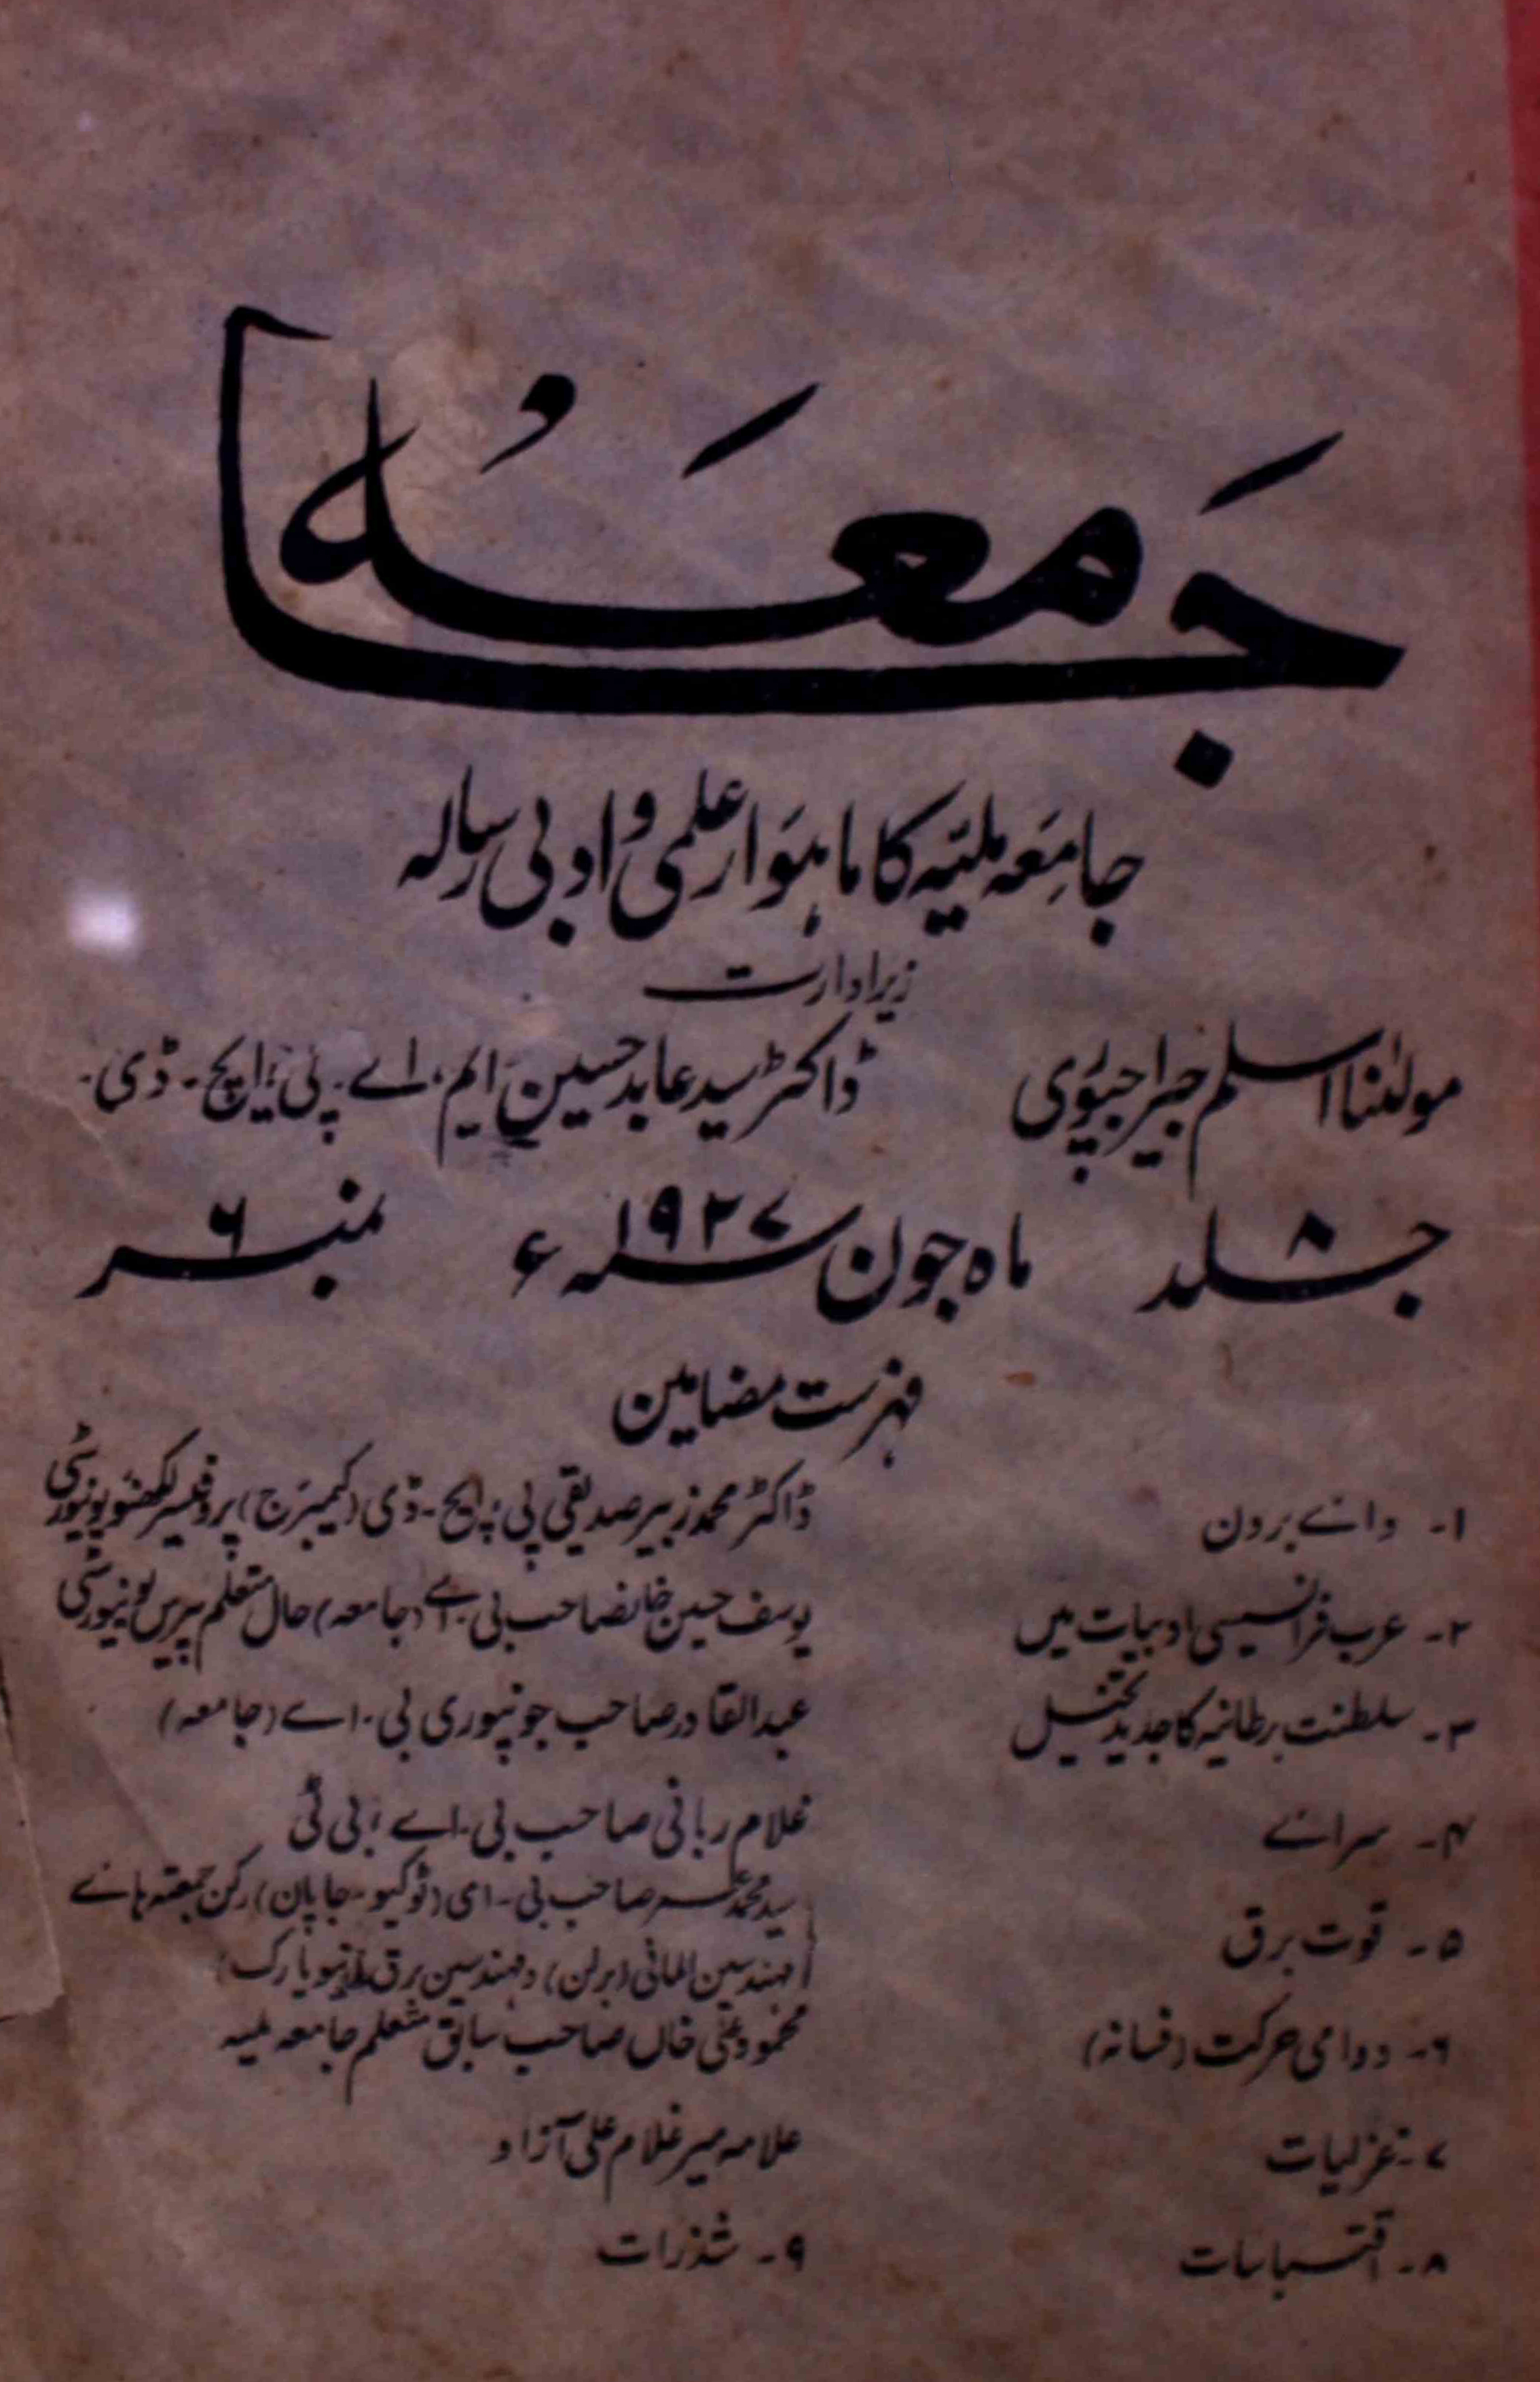 جَامَعَہُ
جامِعَہ ملیّہ کا ماہوار علمی و ادبی رسالہ
زیر ادارت
مولٰنا اسلم جیراجپوری ڈاکٹر سید عابد حسین ایم، اے۔ پی، ایچ۔ ڈی۔
جلد ۸ ماہ جون سنہ ۱۹۲۷ء نمبر ۶
فہرست مضامین
۱۔ وائے بر دن ڈاکٹر محمد زبیر صدیقی پی، ایچ۔ ڈی (کیمبرج) پروفیسر لکھنؤ یونیورسٹی
۲۔ عرب فرانسیسی ادبیات میں یوسف حسین خانصاحب بی۔ اے (جامعہ) حال متعلم پیرس یونیورسٹی
۳۔ سلطنت برطانیہ کا جدید تخیل عبدالقادر صاحب جونپوری بی۔ اے (جامعہ)
۴۔ سرائے غلام ربانی صاحب بی۔ اے، بی ٹی
۵۔ قوت برق سید محمد عمر صاحب بی۔ ای (ٹوکیو۔ جاپان) رکن جمعیۃ ہائے
مہندسین المانی (برلن) و مہندسین برق (نیویارک)
۶۔ دوامی حرکت (فسانہ) محمود علی خاں صاحب سابق متعلم جامعہ ملیہ
۷۔ غزلیات علامہ میر غلام علی آزاد
۸۔ اقتباسات ۹۔ شذرات